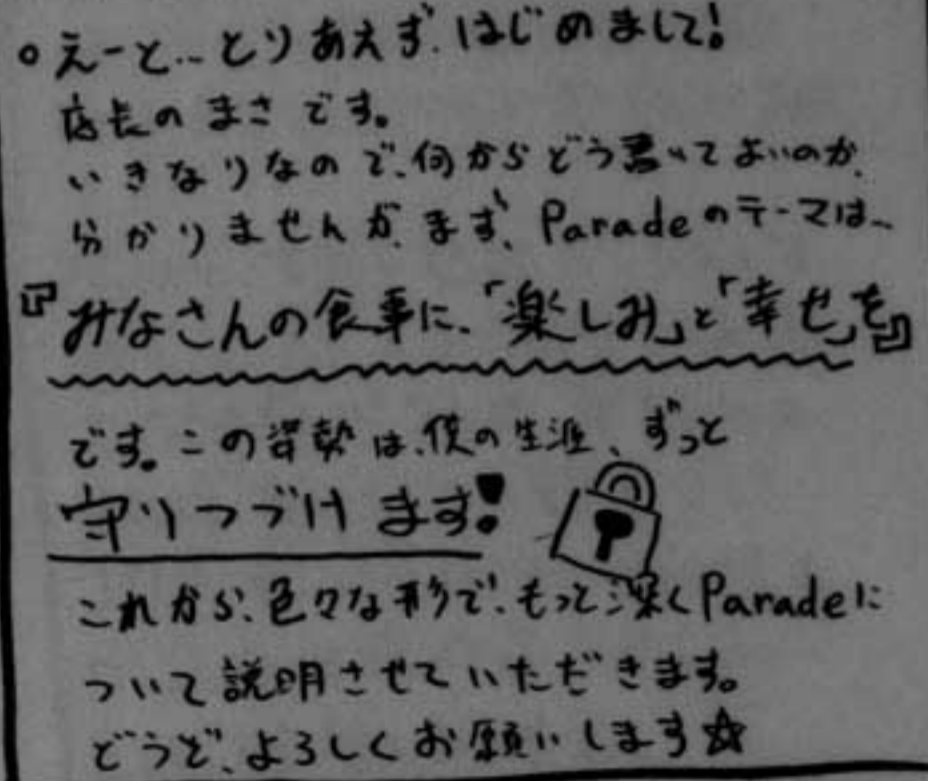 。えーと...とりあえず、はじめまして!
店長のまさです。
いきなりなので、何からどう書いてよいのか、
分かりませんが、まず、Paradeのテーマは、
『みなさんの食事に、「楽しみ」と「幸せ」を』
です。この姿勢は、僕の生涯、ずっと
守りつづけます!
これから、色々な形で、もっと深くParadeに
ついて説明させていただきます。
どうぞ、よろしくお願いします☆